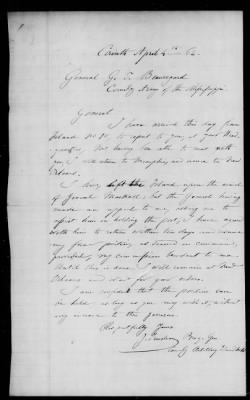 Corinth April 4th 62.
General G. T. Beauregard
Comdg Army of the Mississippi
General
I have arrived this day from
Island No 10. to report to you, at your Head
quarters. Not having been able to meet with
you, I will return to Memphis and thence to New
Orleans.
I have left the Island upon the arrival
of General Mackall, but the General having
made an appeal to me, asking me to
assist him in holding the post, I have agreed
with him to return within ten days and resume
my former position as second in command,
provided, my commission be sent to me.
Until this is done, I will remain at New
Orleans and wait for your orders.
I am confident that the position can
be held as long as you may wish it, without
any to the
Respectfully Yours
Brig. Gen
Comdg Artillery